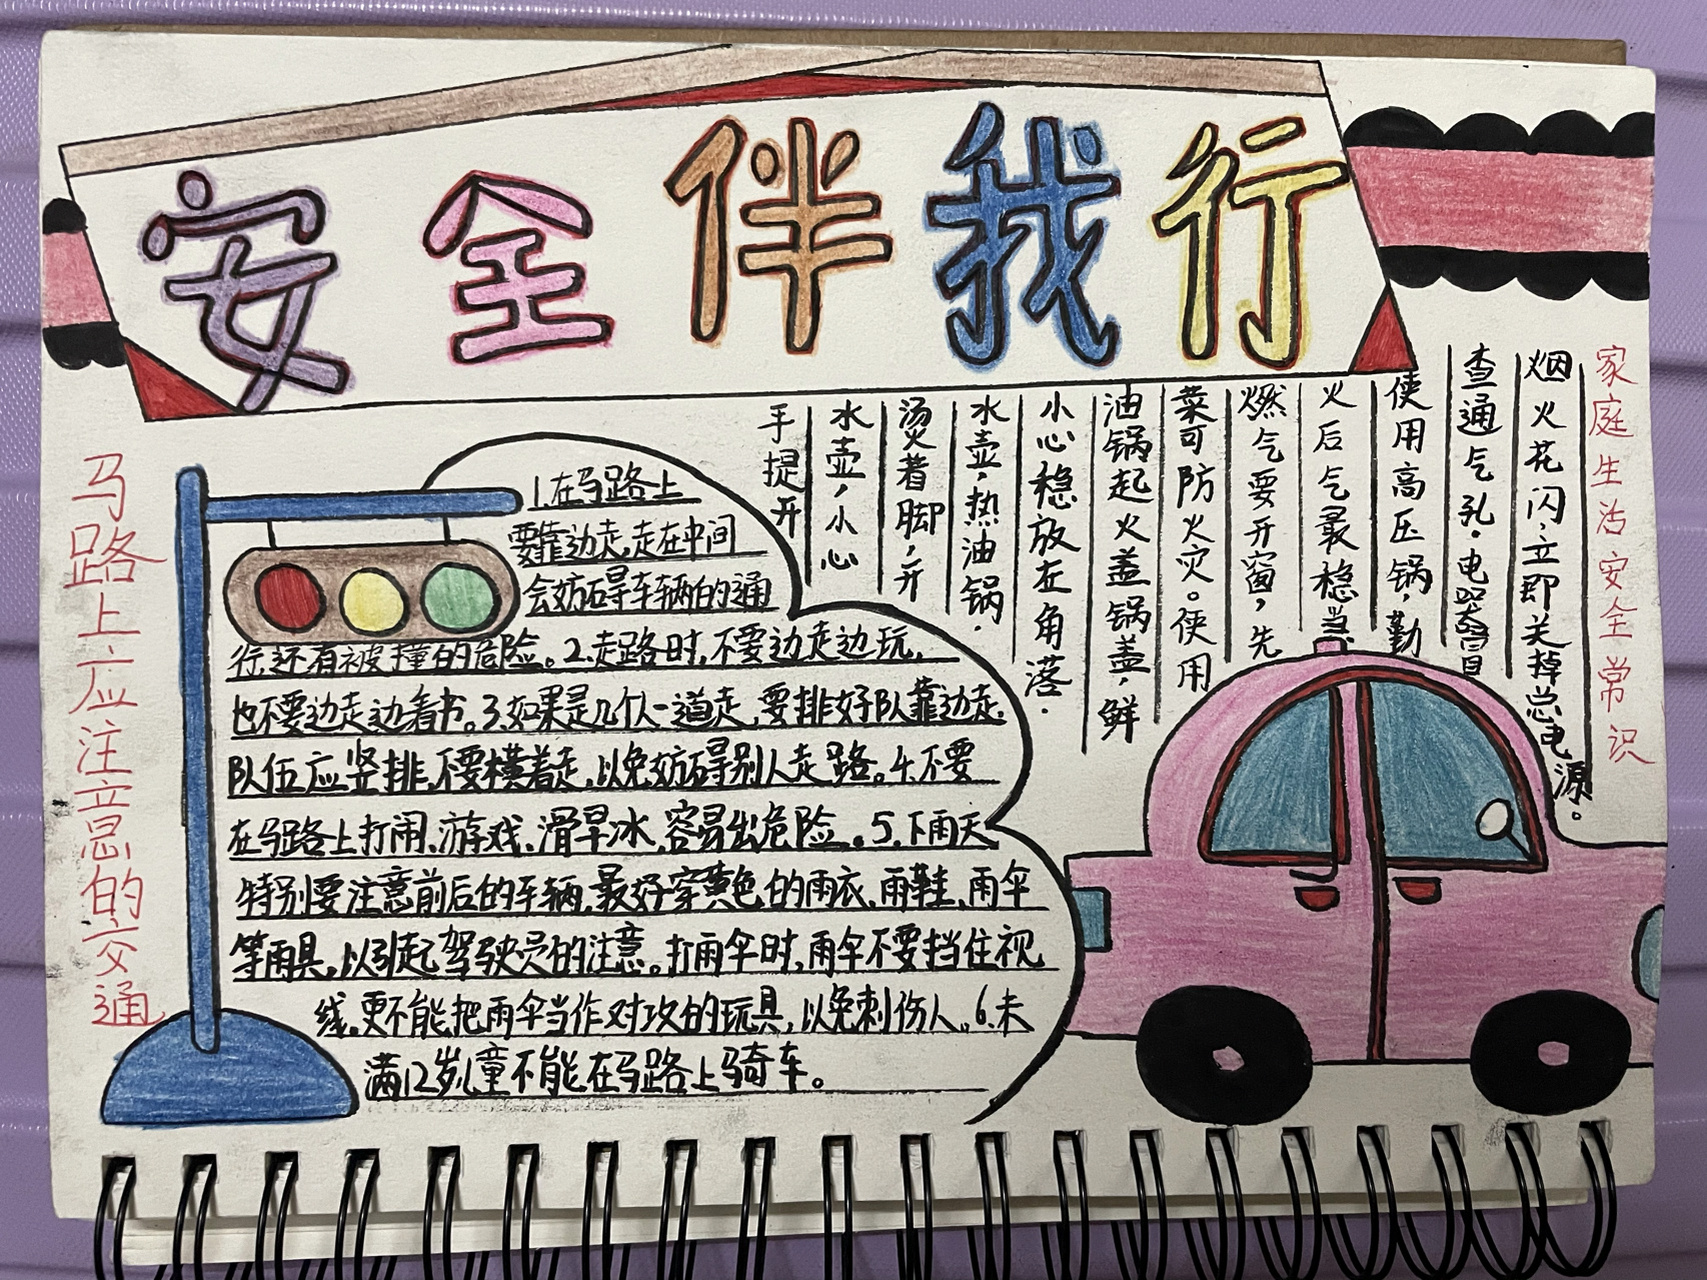 安全伴我行
马路上应注意的交通
1.在马路上
要靠边走,走在中间
会妨碍车辆的通
行,还有被撞的危险。2.走路时,不要边走边玩,
也不要边走边看书。3.如果是几个人一道走,要排好队靠边走.
队伍应竖排,不要横着走,以免妨碍别人走路。4.不要
在马路上打闹、游戏、滑旱冰,容易出危险。5.下雨天
特别要注意前后的车辆,最好穿黄色的雨衣、雨鞋、雨伞
等雨具,以引起驾驶员的注意。打雨伞时,雨伞不要挡住视
线,更不能把雨伞当作对攻的玩具,以免刺伤人。6.未
满12岁儿童不能在马路上骑车。
家庭生活安全常识
手提开
水壶,小心
烫着脚,开
水壶,热油锅.
小心稳放在角落.
油锅起火盖锅盖,鲜
菜可防火灾。使用
燃气要开窗,先
火后气最稳当
使用高压锅,勤
查通气孔.电器冒
烟火花闪,立即关掉总电源。